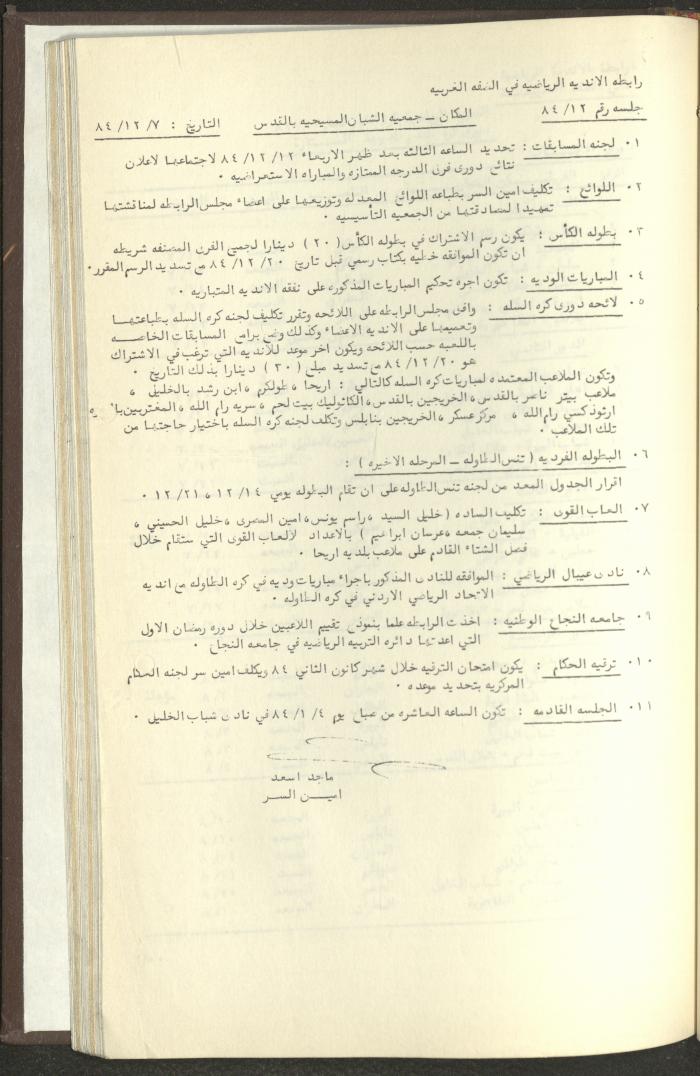 رابطه الانديه الرياضيه في الضفه الغربيه
جلسه رقم ٨٤/١٢ المكان ــ جمعيه الشبان المسيحيه بالقدس التاريخ : ٨٤/١٢/٧
٠١ لجنه المسابقات : تحديد الساعه الثالثه بعد ظهر الاربعاء ٨٤/١٢/١٢ لاجتماعها لاعلان
نتائج دورى فرق الدرجه الممتازه والمباراه الاستعراضيه ٠
٠٢ اللوائح : تكليف امين السر بطباعه اللوائح المعدله وتوزيعها على اعضاء مجلس الرابطه لمناقشتها
تمهيدا لمصادقتها من الجمعيه التأسيسيه ٠
٠٣ بطوله الكأس : يكون رسم الاشتراك في بطوله الكأس ( ٢٠ ) دينارا لجميع الفرق المصنفه شريطه
ان تكون الموافقه خطيه بكتاب رسمي قبل تاريخ ٨٤/١٢/٢٠ مع تسديد الرسم المقرر٠
٠٤ المباريات الوديه : تكون اجره تحكيم المباريات المذكوره على نفقه الانديه المتباريه ٠
٠٥ لائحه دورى كره السله : وافق مجلس الرابطه على اللائحه وتقرر تكليف لجنه كره السله بطباعتها
وتعميمها على الانديه الاعضاء وكذلك وضع برامج المسابقات الخاصه
باللعبه حسب اللائحه ويكون اخر موعد للانديه التي ترغب في الاشتراك
هو ٨٤/١٢/٢٠ مع تسديد مبلغ ( ٣٠ ) دينارا بذلك التاريخ ٠
وتكون الملاعب المعتمده لمباريات كره السله كالتالي : اريحا ، طولكرم ، ابن رشد بالخليل ،
ملاعب بيتر ناصر بالقدس ، الخريجين بالقدس ، الكاثوليك بيت لحم ، سريه رام الله ، المغتربين
ارثوذكسي رام الله ، مركز عسكر ، الخريجين بنابلس وتكلف لجنه كره السله باختيار حاجتها من
تلك الملاعب ٠
٠٦ البطوله الفرديه ( تنس الطاوله ــ المرحله الاخيره ) :
اقرار الجدول المعد من لجنه تنس الطاوله على ان تقام البطوله يومي ١٢/١٤ ، ١٢/٢١ ٠
٠٧ العاب القوى : تكليف الساده ( خليل السيد ، راسم يونس ، امين المصرى ، خليل الحسيني ،
سليمان جمعه ، عرسان ابراهيم ) بالاعداد لالعاب القوى التي ستقام خلال
فصل الشتاء القادم على ملاعب بلديه اريحا ٠
٠٨ نادى عيبال الرياضي : الموافقه للنادى المذكور باجراء مباريات وديه في كره الطاوله مع انديه
الاتحاد الرياضي الاردني في كره الطاوله ٠
٠٩ جامعه النجاح الوطنيه : اخذت الرابطه علما بنموذج تقييم اللاعبين خلال دوره رمضان الاول
التي اعدتها دائره التربيه الرياضيه في جامعه النجاح ٠
٠١٠ ترقيه الحكام : يكون امتحان الترقيه خلال شهر كانون الثاني ٨٤ ويكلف امين سر لجنه الحكام
المركزيه بتحديد موعده ٠
٠١١ الجلسه القادمه : تكون الساعه العاشره من صباح يوم ٨٤/١/٤ في نادى شباب الخليل ٠
ماجد اسعد
اميــن الســر